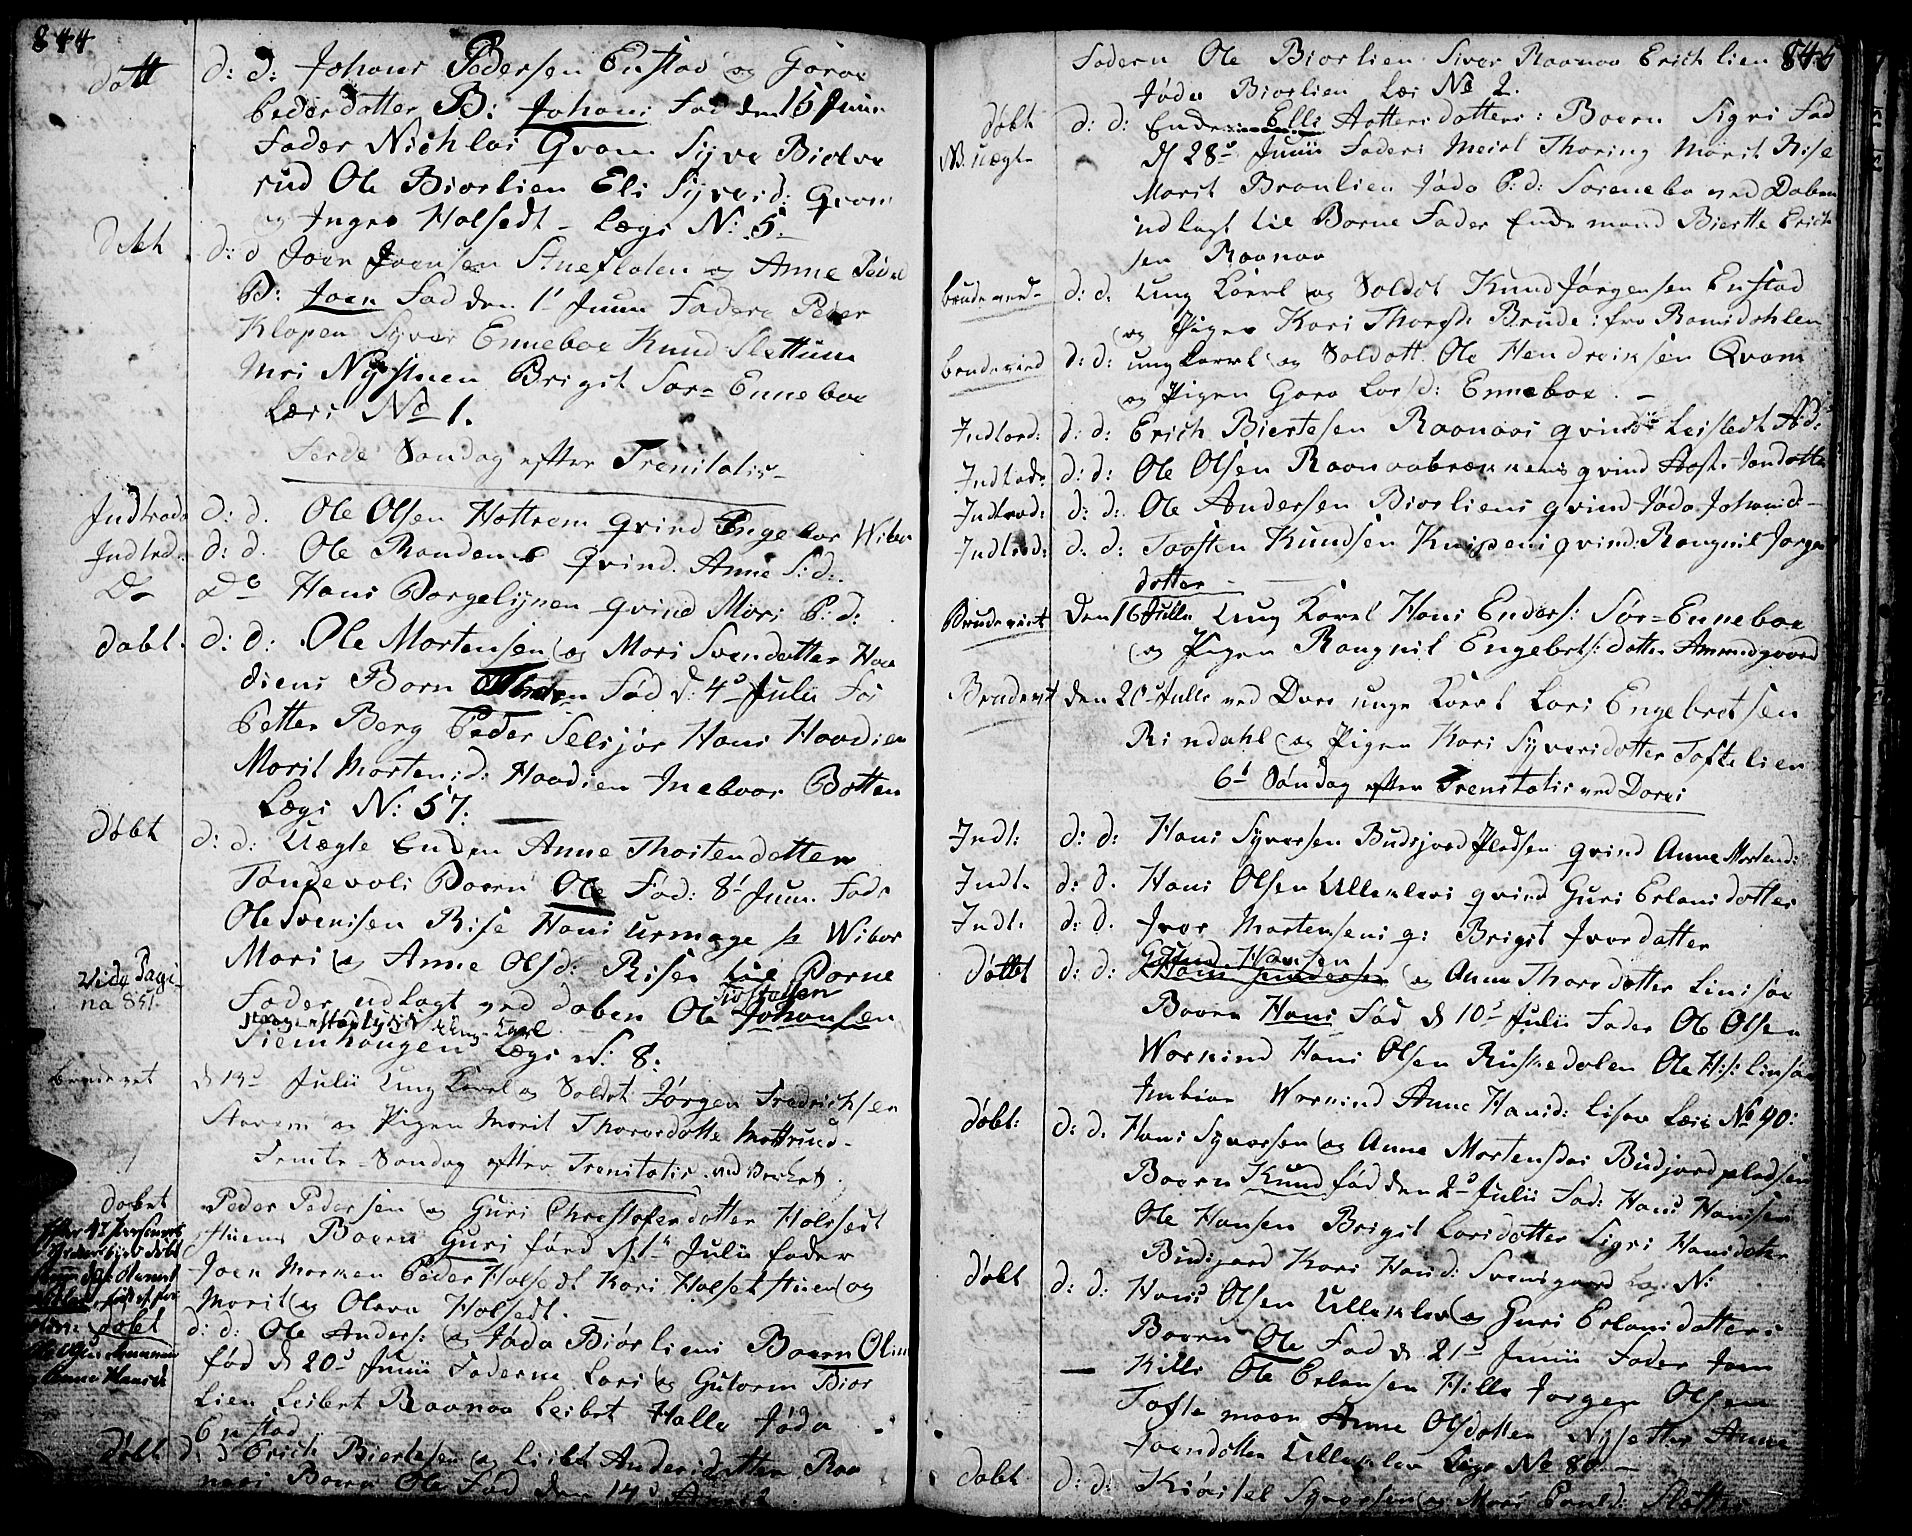 844
døtt d: d: Johans Pedersen Enstad og Goroe
Pedersdatter B: Johans Fød den 15 Junii
Fader Nichlas Qvam Syver Bielve
rud Ole Biorlien Eli Syversd: Qvam
og Ingro Holsedt - Lægs N: 5.
døbt d: d Joen Joensen Stueflaten og Anne Peder
B: Joen Fød den 1' Junii Fadere Peder
Klopen Syver Enneboe Knud Slettum
Mri Nystuen Brigit Sør-Enneboe
Læri No 1.
Ferde Søndag efter Trenitatis
Indlrode d: d. Ole Olsen Hottrem qvind Engebor Wibor
Indled. d: d. Ole Randems qvind. Anne S: d:
Do Do Hans Borgelynen qvind Mari P: d:
døbt. d: d: Ole Mortensen og Mari Svendatter Haa
diens Børn Fød d: 4d Julii Fad
Petter Berg Peder Selsjor Hans Haadien
Marit Morten: d: Haadien Ineboor Botten
Lægs N: 57.
døbt d: d: Uægte Enden Anne Thostendatter
Tøndevols Boern Ole Fød: 8d Junii Fadr
Ole Svensen Rise Hans Urmage Wibor
Mari og Anne Olsd: Risen til Borne
Vide Pagi-
na 851. Fader udlagt ved daben Ole Johansen
Tiostolsen
Ung Karl
Tiemhaugen Lægs N: 8:
brudevet d 13d Julii Ung Karl og Soldat Jørgen Fredrichsen
Starem og Pigen Marit Thorsdotte Mottrud
Femte-Søndag efter Trenitatis ved Verket
døbet Peder Pedersen og Guri Christofersdotter Holsedt
Stuens Boern Guri førd d. 1d Julii fader
Joen Morken Peder Holsedt Kari Holset Stuen og
Marit og Olava Holsedt.
døbet d: d: Ole Anders: og Jøda Biørliens Boern Olin
fød d 20d Junii Faderne Lars og Gutorm Bior
lien Leibet Raanaa Leibet Halle Jøda
Enstad
døbt d: d Erich Biertesen og Leibet Andersdatter Raa
naas Boern Ole Fød den 14d
845
Fadern Ole Biorlien Siver Raanaa Erich lien
Jøda Biorlien Læi No 2.
døbt d: d: Enders: Elli Aottersdotters: Boern Sigri Fød
NB: Uægte d 28d Junii Faders Meirl Thoring Marit Rise
Marit Braulien Jøda P: d: Sørenebo ved Daben
udlagt til Borne Fader Ende mand Biertte Erich
sen Raanaa
brudeved d: d. Ung Karl og Soldat Knud Jørgensen Enstad
og Pigen Kari Thorsd: Brude: fra Romsdahlen
brudevied d: d: ung Karl og Soldatt. Ole Hendricksen Qvam
og Pigen Goro Larsd: Enneboe. -
Indlard: d: d: Erich Biertesen Raanaas qvind Leistedt A:d:
Indlad: d: d: Ole Olsen Raanaabrækkens qvind Aaste Jandotte
Indlrod: d: d: Ole Andersen Biorliens qvind Jøda Johansd:
Indlrod: d. d: Taasten Knudsen Knipens qvind: Rangnil Jorgen
dotter -
Brudeviet Den 16 Julle Ung Karl Hans Enders: Sør-Enneboe
og Pigen Rangnil Engebrets: dotter Ammundgaard
Brudevet den 20d Julle ved Dore unge Karl Lars Engebretsen
Rindahl og Pigen Kari Syversdotter Toftelien
6d Søndag efter Trenitatis ved Dores
Indl: d: d: Hans Syversen Budsjord Pladsen qvind Anne Mortensd:
Indl. d: d. Hans Olsen Ulleklevs qvind Guri Erlansdotter
Indl: d: d. Iver Mortensens q: Brigit Iversdatter
døttet d: d: Gulbrand Hansen og Anne Thorsdotter Linisøe
Boern Hans Fød d 10d Julii Fader Ole Olsen
Workind Hans Olsen Ruskedolen Ole H:s: Linsøe
Imbior Workind Anne Hansd: Lisøe Læis No 90:
døbt: d: d. Hans Syversen og Anne Mortensdas Budjordpladsen
Boern Knud fød den 2d Julii Fad: Hans Hansen
Ole Hansen Brigit Larsdotter Sigri Hansdotter
Budsjord Kari Hansd: Svensgaard Læg: N:
døbt d: d: Hans Olsen Ulleklev og Guri Erlansdotters
Boern Ole Fød d 21d Junii Fader Joen
— Kille Ole Erlensen Hille Jørgen Olsen
Tofte moen Anne Olsdotter Nysetter Anne
Joensdotter Ulleklev Lægs No 80 -
døbt d: d: Kiøstel Syversen og Mari Pouls d: Slette